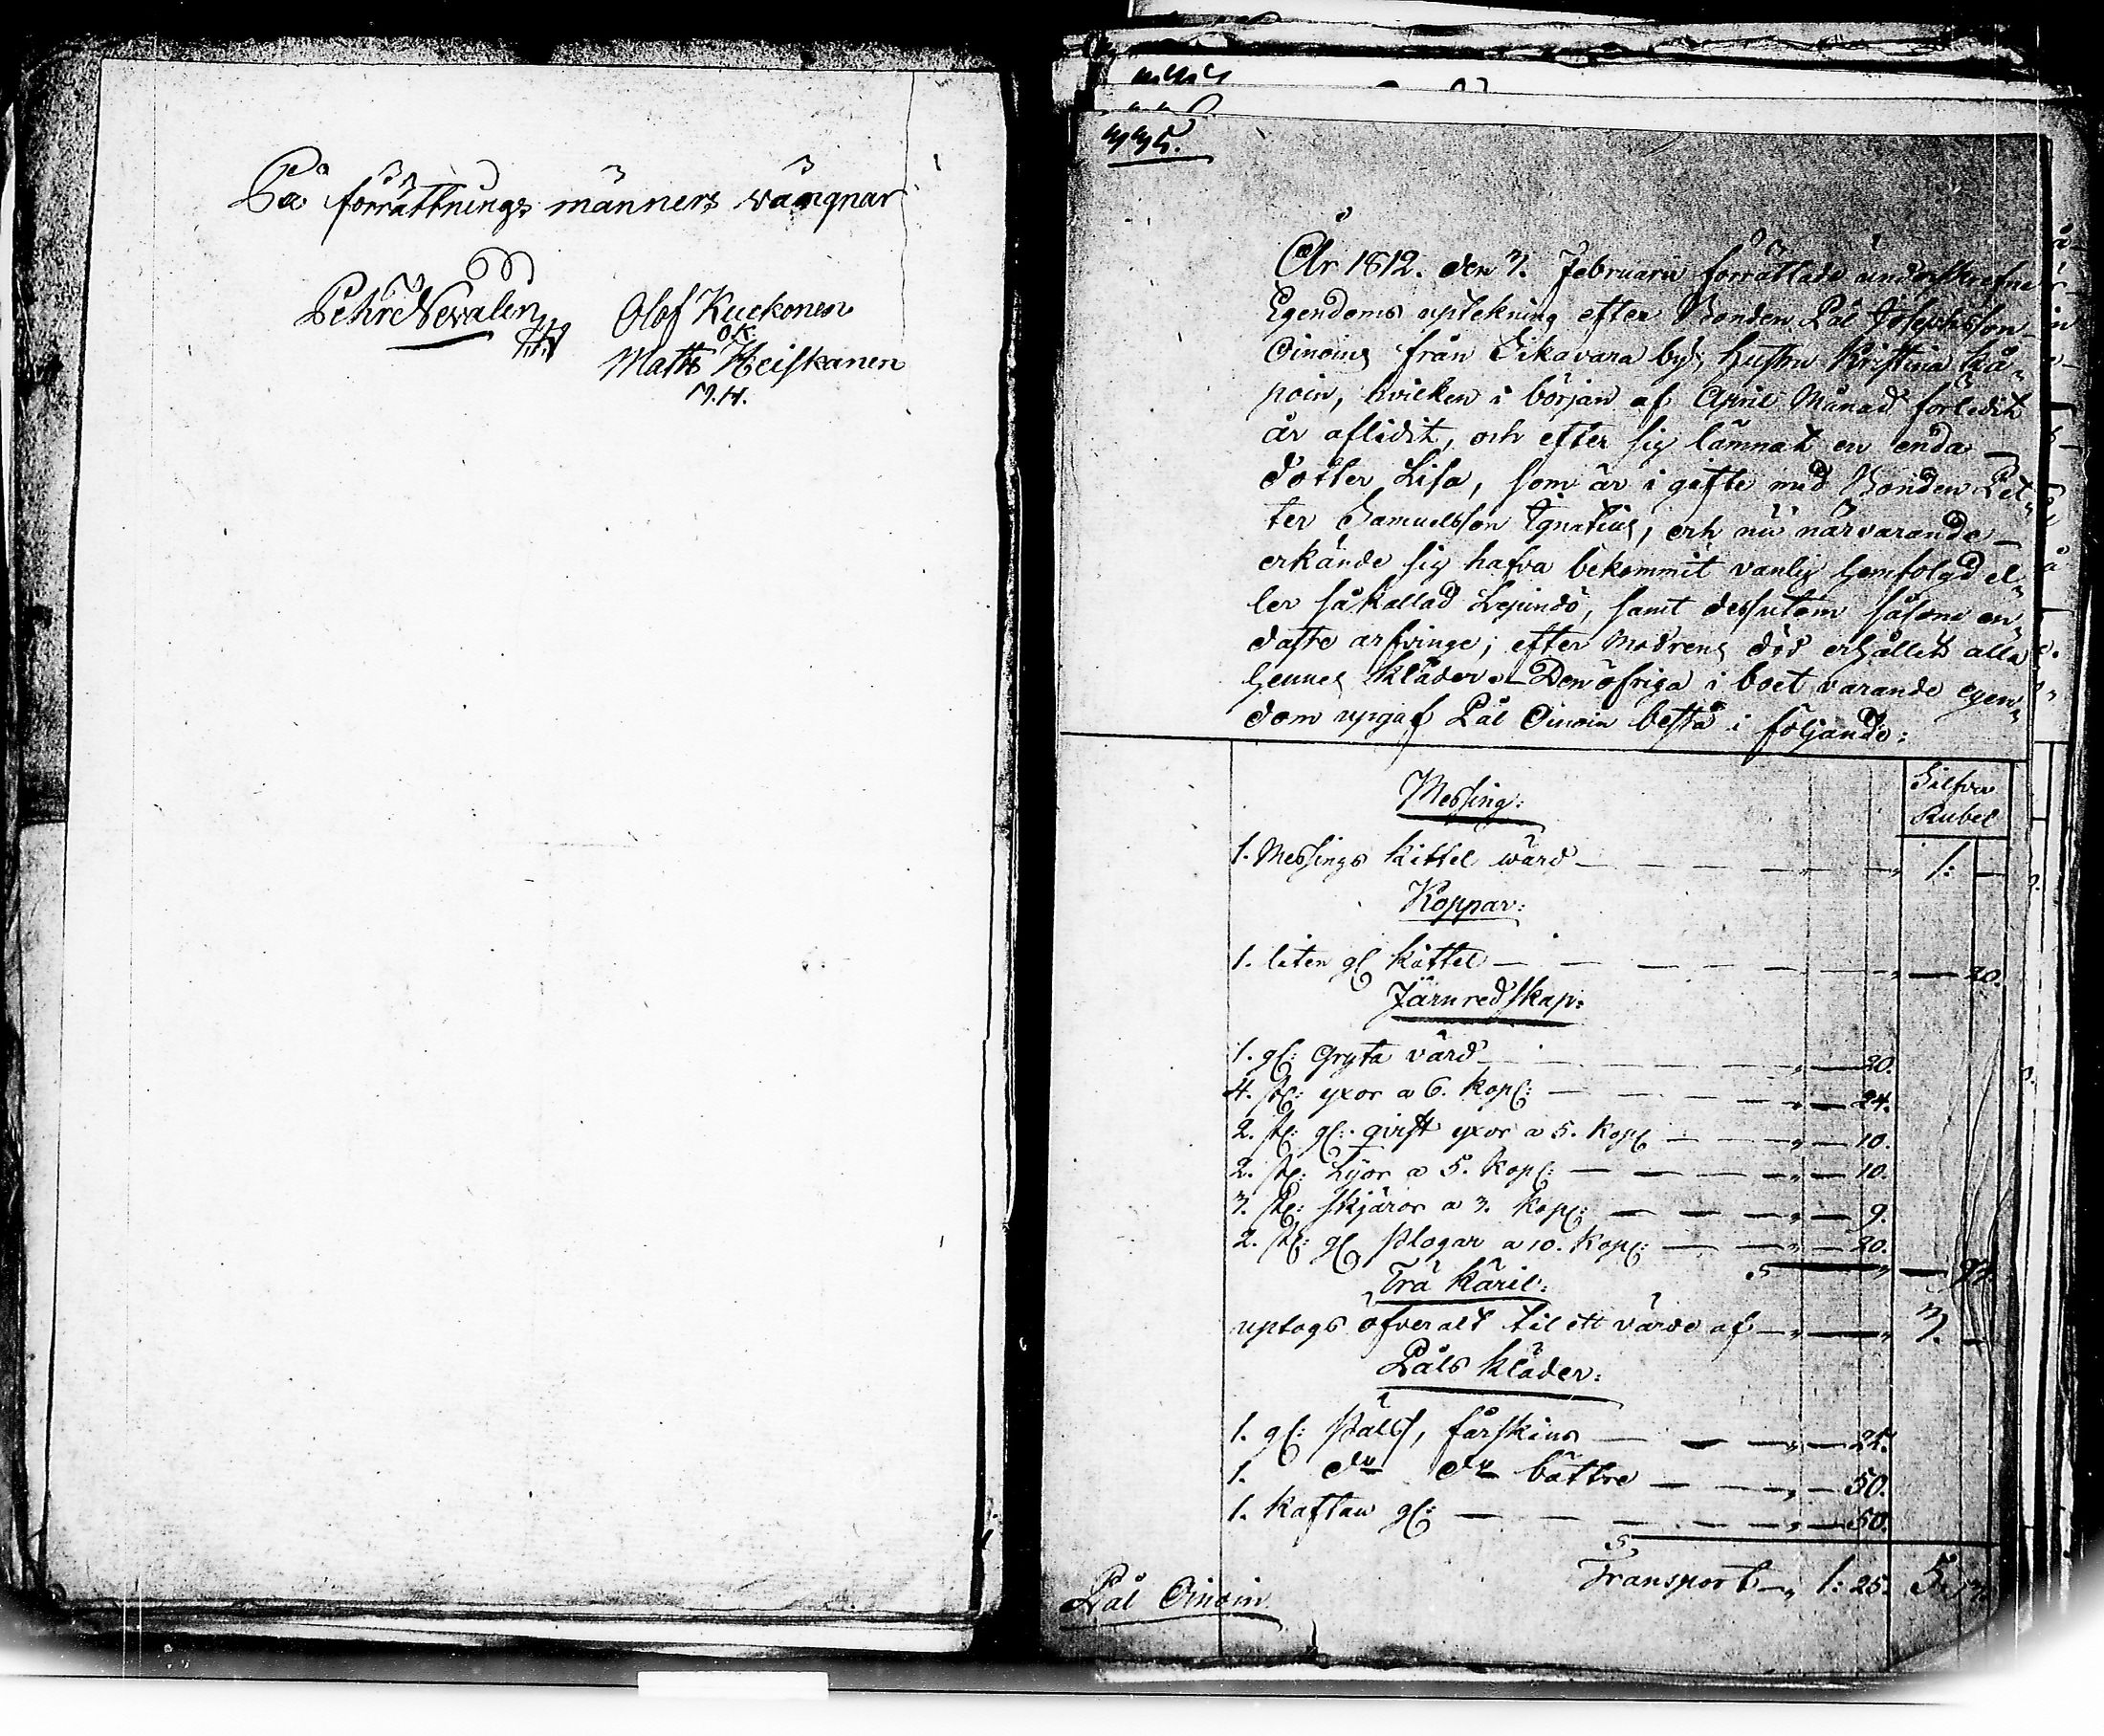 På förrättnings männers vängnar
Petter Nevalen
Olof Kuckonen
O.K.
Matts Heiskanen
M.H.
År 1812. den 7. Februarii förrättade underskrefne
Egendoms uptekning efter Bonden Pål Josephsson
Oinoins från Sikavara by, hustru Kristina Kå„
poin, hvilken i början af April Månad förledit
år aflidit, och efter sig lämnat en enda
dotter Lisa, som är i gifte med Bonden Pet„
ter Samuelsson Ignatius, och nu närvarande
erkände sig hafva bekommit vanlig hemfolgd el„
ler såkallad, samt dessutom såsom en„
daste arfvinge, efter Modrens död erhållit alla
hennes kläder. Den öfriga i boet varande egen„
dom upgaf Pål Oinoin bestå i följande:
Silfver
Rubel
Messing:
1. Messings kittel wärd 1: —
Koppar:
1. liten gl kättel — 20.
Järnredskap:
1. gl: Gryta värd — 20.
4. st: yxor a 6. kop: — 24.
2. st: gl: qvist yxor a 5. Kop — 10.
2. st: Lijor a 5. kop: — 10.
3. st: skjäror a 3. kop: — 9.
2. st: gl plogar a 10. kop: — 20. — 93.
Trä käril:
uptogs öfveralt til ett värde af — 3. —
Påls kläder:
1. gl: päls, fårskins — 25.
1. do do bättre — 50.
1. kaftan gl: — 50.
Transport 1: 25. 5:
Pål Oinoin